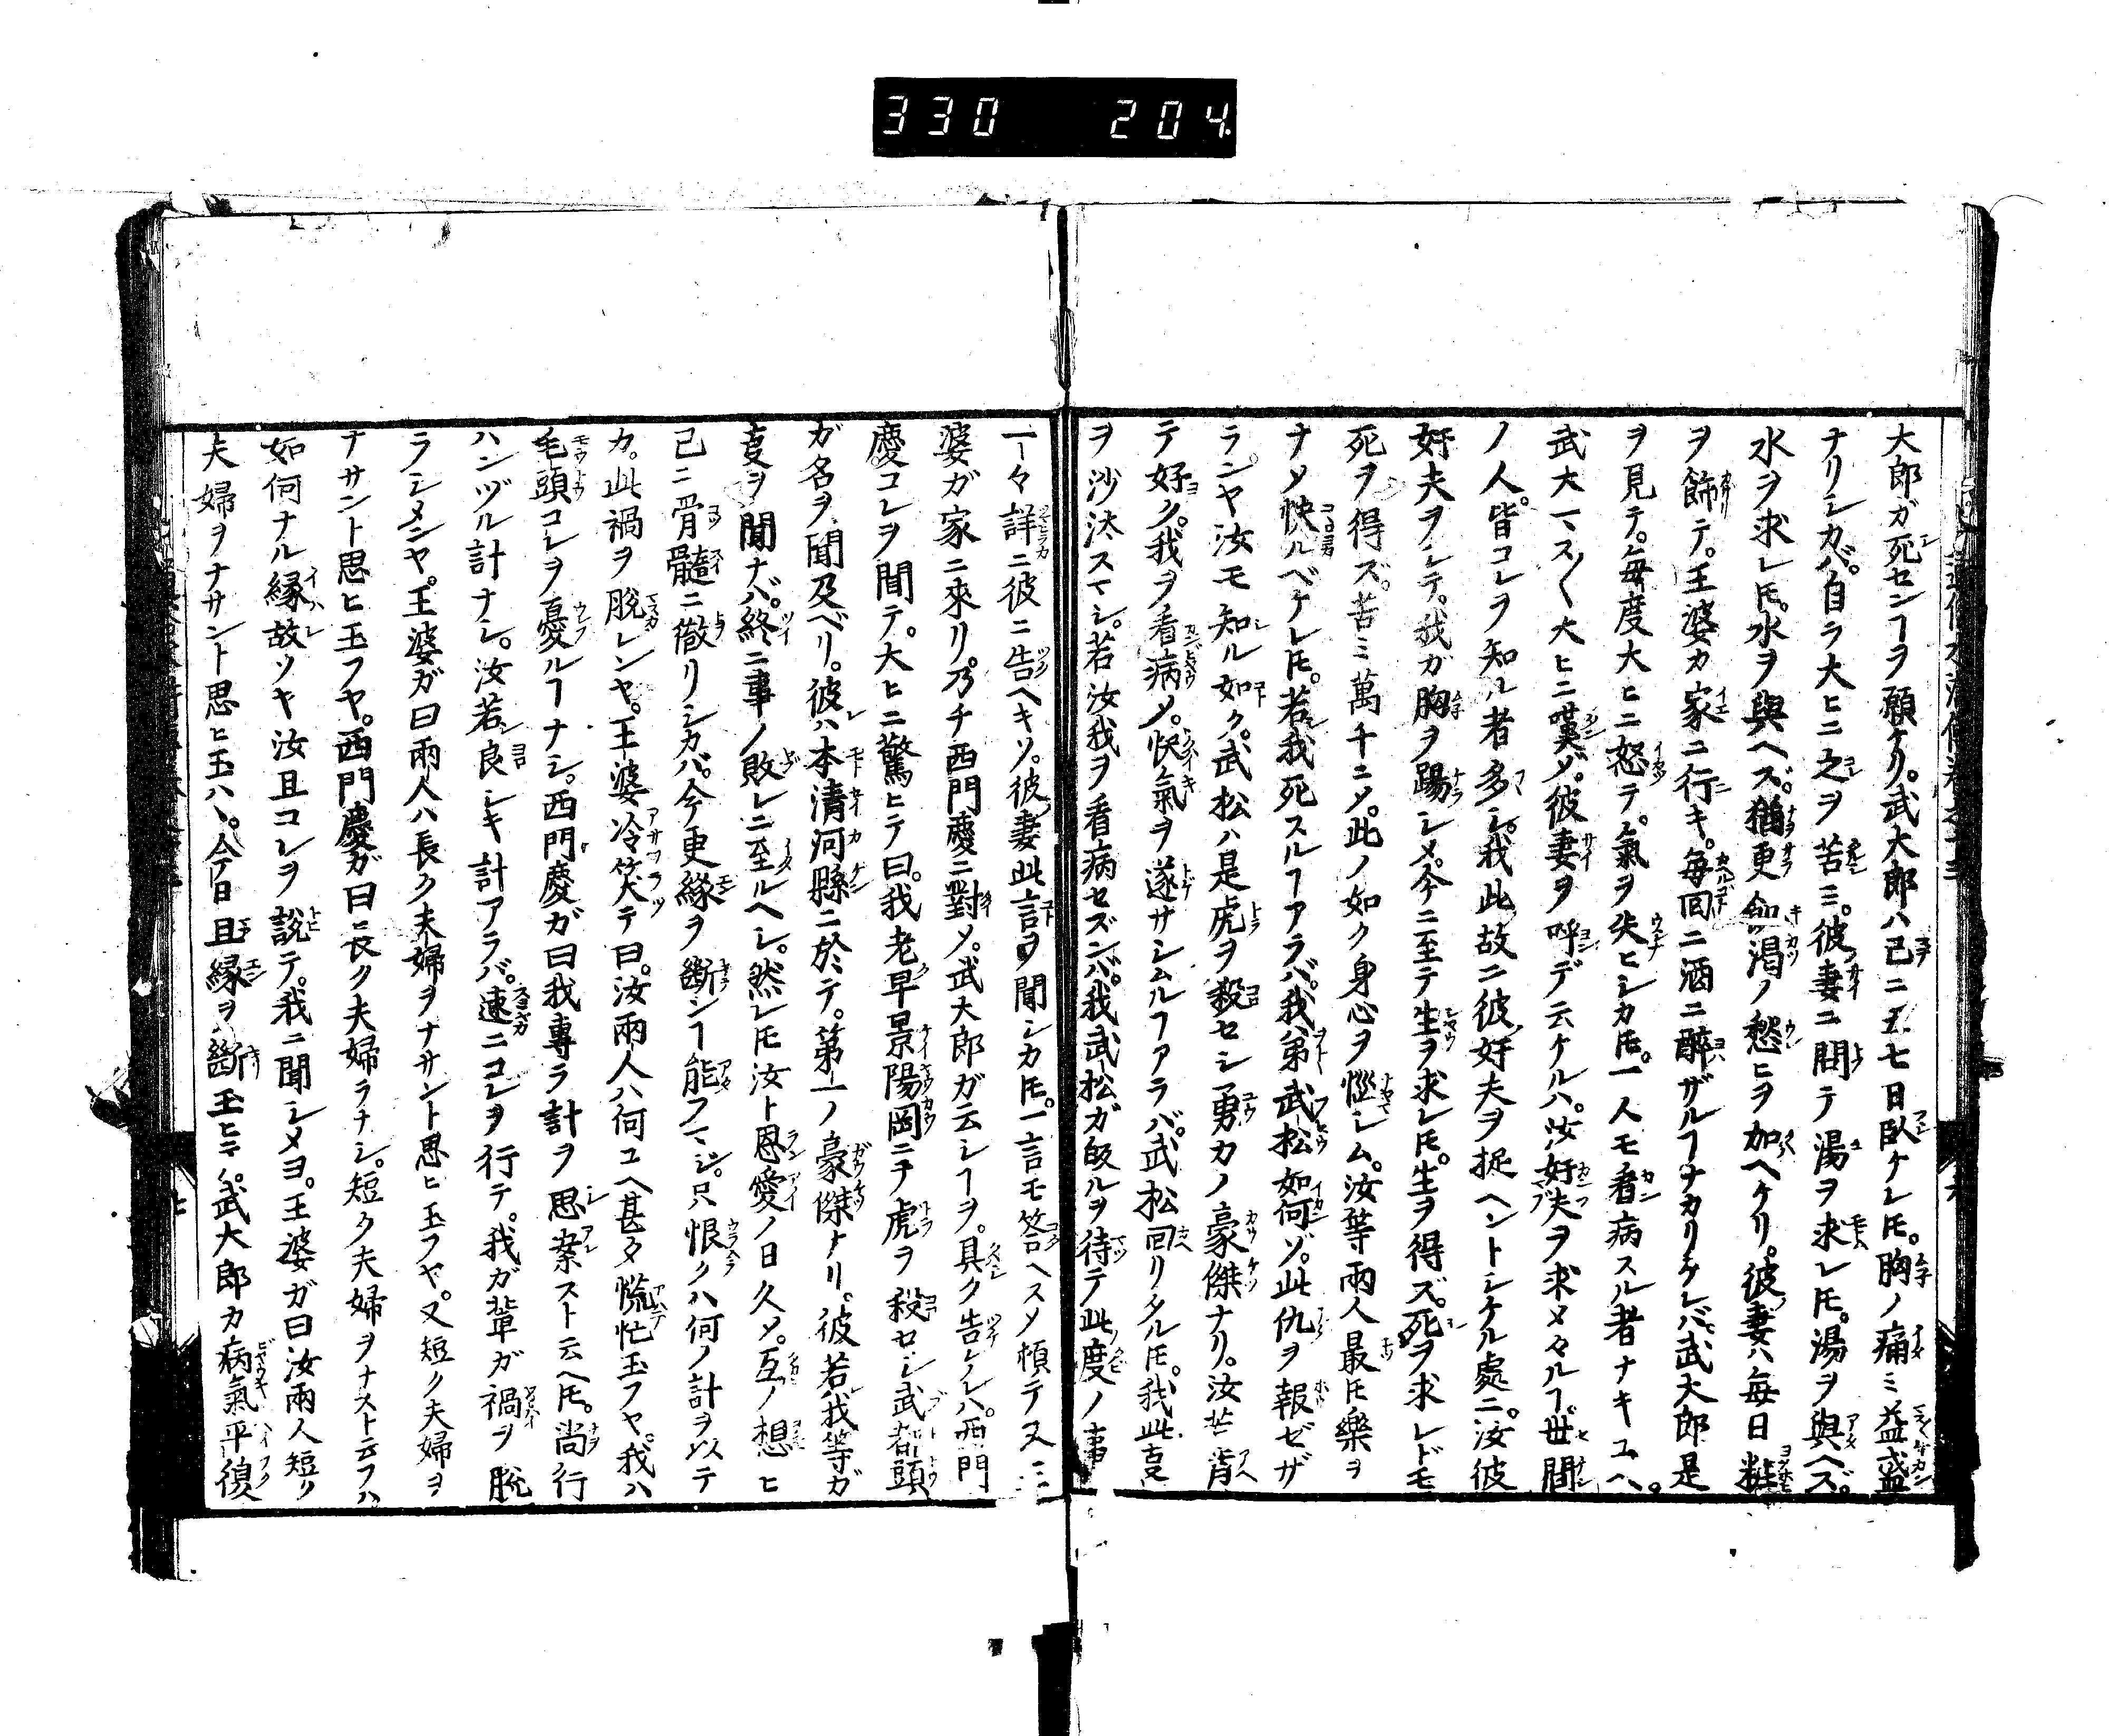 330 204
大郎ガ死センヿヲ願ケリ。武大郎ハ已ニ五七日臥ケレ𪜈。胸ノ痛ミ益盛
ナリシカバ。自ラ大ヒニ之ヲ苦ミ。彼妻ニ問テ湯ヲ求レ𪜈。湯ヲ與ヘズ。
水ヲ求レ𪜈。水ヲ與ヘズ。猶更飢渇ノ愁ヒヲ加ヘケリ。彼妻ハ毎日粧
ヲ飾テ。王婆カ家ニ行キ。毎回ニ酒ニ醉ザルヿナカリケレバ。武大郎是
ヲ見テ。毎度大ヒニ怒テ。氣ヲ失ヒシカ𪜈。一人モ看病スル者ナキユヘ。
武大マス〱大ヒニ嘆ゾ。彼妻ヲ呼デ云ケルハ。汝奸夫ヲ求メタルヿ。世間
ノ人。皆コレヲ知ル者多シ。我此故ニ彼奸夫ヲ捉ヘントシケル處ニ。汝彼
奸夫ヲシテ。我ガ胸ヲ踢シメ。今ニ至テ生ヲ求レ𪜈。生ヲ得ズ。死ヲ求レドモ
死ヲ得ズ。苦ミ萬千ニメ。此ノ如ク身心ヲ悩シム。汝等兩人最𪜈樂ヲ
ナメ快ルベケレ𪜈。若我死スルヿアラバ。我弟武松如何ゾ。此仇ヲ報ゼザ
ランヤ汝モ知ル如ク。武松ハ是虎ヲ殺セシ勇力ノ豪傑ナリ。汝肯
テ好ク。我ヲ看病メ。快氣ヲ遂サシムルヿアラバ。武松回リタル𪜈。我此叓
ヲ沙汰スマシ。若汝我ヲ看病セズンバ。我武松ガ皈ルヲ待テ此度ノ事
一々詳ニ彼ニ告ヘキソ。彼妻此言ヲ聞シカ𪜈。一言モ答ヘスメ頓テ又王
婆ガ家ニ來リ。乃チ西門慶ニ對メ。武大郎ガ云シヿヲ。具ク告ケレハ。西門
慶コレヲ聞テ。大ヒニ驚ヒテ曰。我老早景陽岡ニテ虎ヲ殺セシ武都頭
ガ名ヲ聞及ベリ。彼ハ本清河縣ニ於テ。第一ノ豪傑ナリ。彼若我等ガ
叓ヲ聞ナバ。終ニ事ノ敗レニ至ルヘシ。然レ𪜈汝ト恩愛ノ日久メ。互ノ想ヒ
已ニ骨髓ニ徹リシカバ。今更縁ヲ斷シヿ能フマジ。只恨クハ何ノ計ヲ以テ
カ。此禍ヲ脱レンヤ。王婆冷笑テ曰。汝兩人ハ何ユヘ甚タ慌忙玉フヤ。我ハ
毛頭コレヲ憂ルヿナシ。西門慶ガ曰我專ラ計ヲ思案スト云ヘ𪜈。尚行
ハンヅル計ナシ。汝若良シキ計アラバ。速ニコレヲ行テ。我ガ輩ガ禍ヲ脱
ラシメンヤ。王婆ガ曰兩人ハ長ク夫婦ヲナサント思ヒ玉フヤ。又短ク夫婦ヲ
ナサント思ヒ玉フヤ。西門慶ガ曰ニ長ク夫婦ラナシ。短ク夫婦ヲナスト云フハ
如何ナル縁故ソキ汝且コレヲ説テ。我ニ聞シメヨ。王婆ガ曰汝兩人短ク
夫婦ヲナサント思ヒ玉ハヽ。今日且縁ヲ斷玉ヒニ。武大郎カ病氣平復